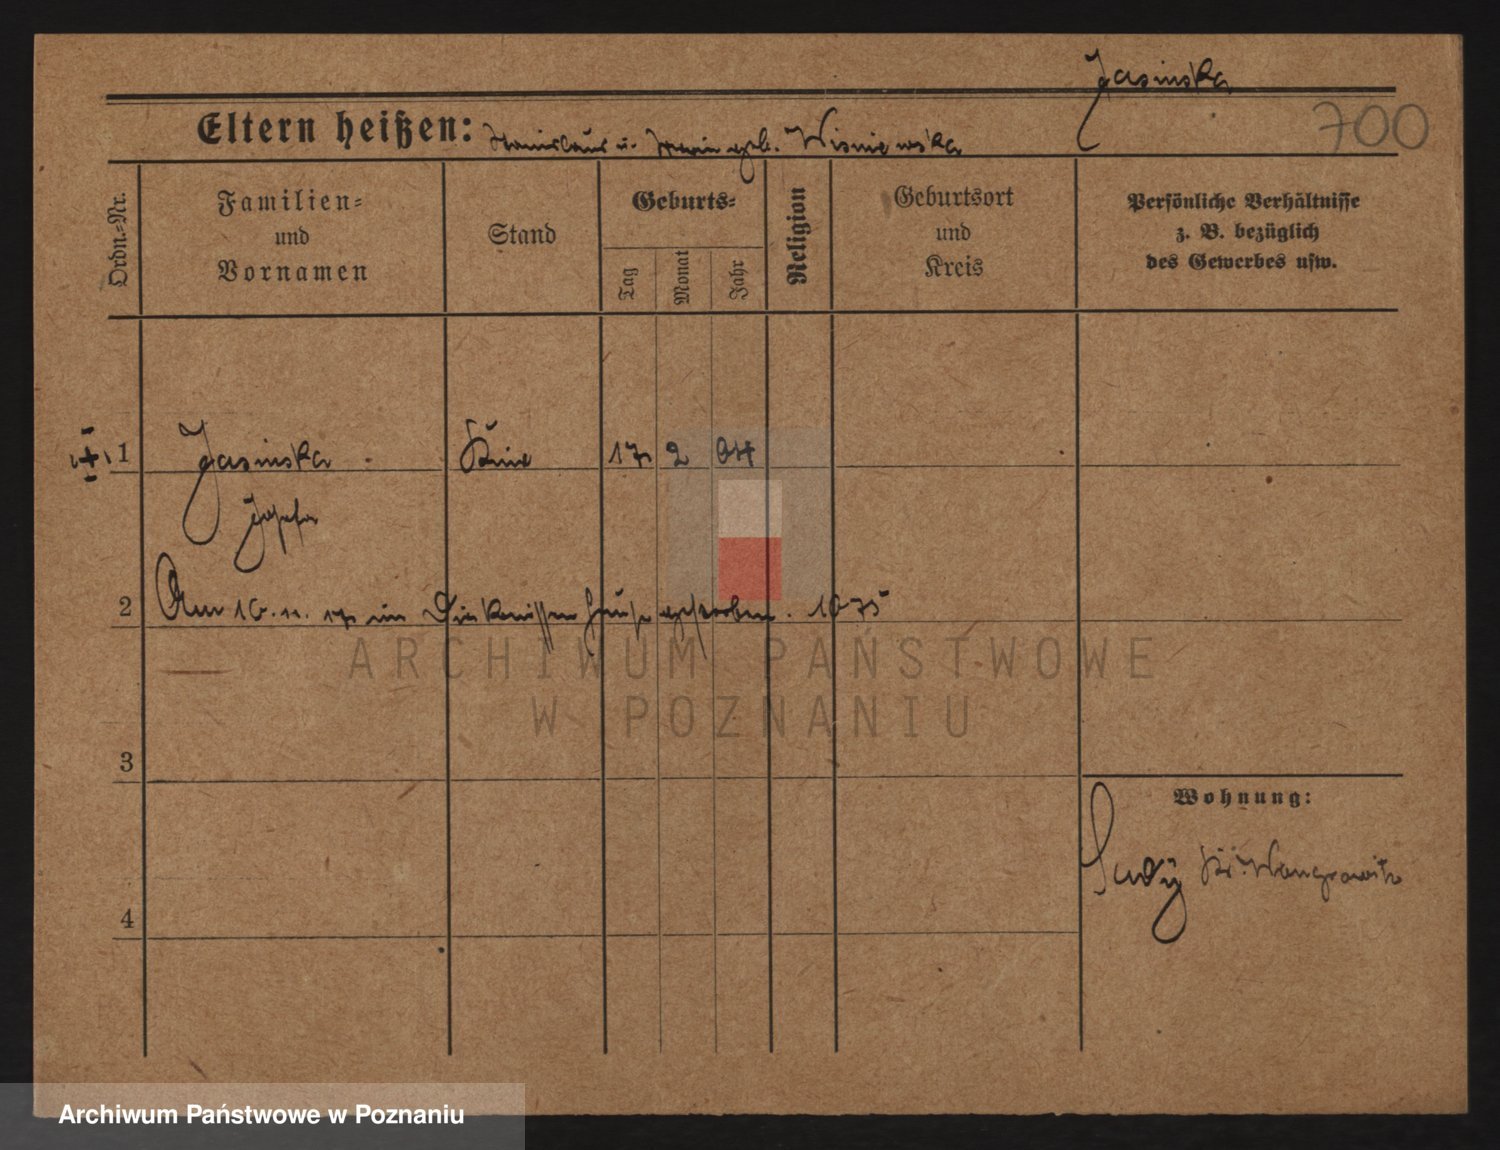 Jasinska
700
Eltern heißen: Stanislaus u. Maria geb. Wisniewska
Ordn.-Nr.
Familien-
und
Vornamen
Stand
Geburts-
Tag
Monat
Jahr
Religion
Geburtsort
und
Kreis
Persönliche Verhältnisse
z. B. bezüglich
des Gewerbes usw.
1 Jasinska 17 2 04
Josefa
2 Am 16. 11. 17 im Diakonissenhause gestorben. 1075
ARCHIWUM PAŃSTWOWE
W POZNANIU
3
Wohnung:
Kr. Wongrowitz
4
Archiwum Państwowe w Poznaniu